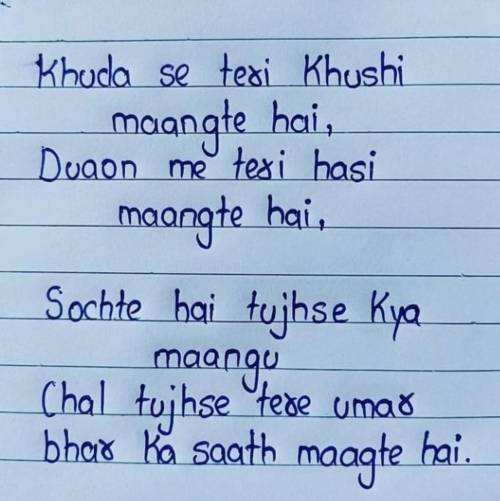 Khuda se teri Khushi
maangte hai,
Duaon me teri hasi
maangte hai,
Sochte hai tujhse Kya
maangu
Chal tujhse tere umar
bhar Ka saath maagte hai.